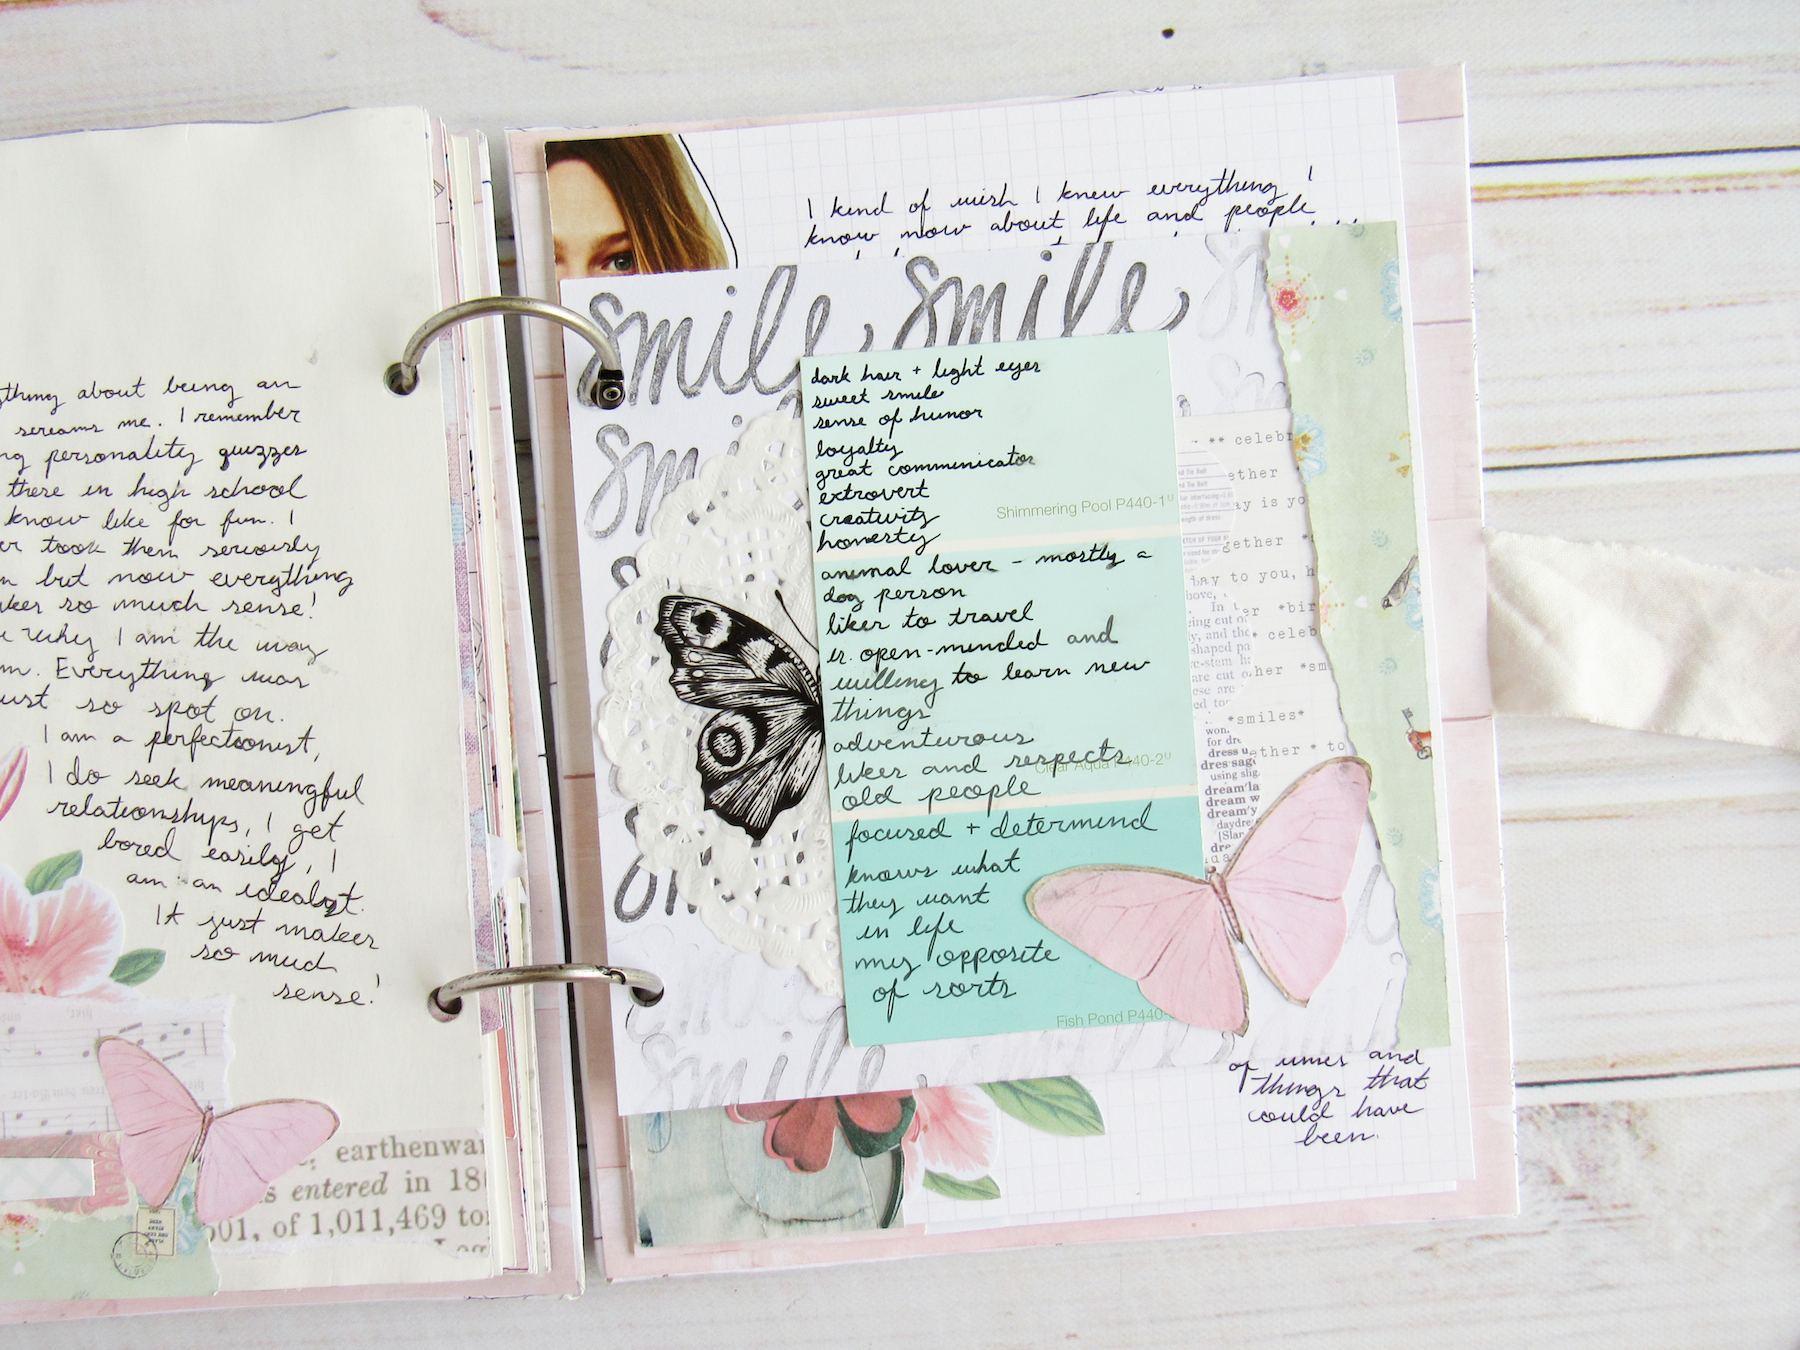 thing about being an
screams me. I remember
ng personality quizzes
there in high school
know like for fun. I
er took them seriously
n but now everything
akes so much sense!
e why I am the way
m. Everything was
ust so spot on.
I am a perfectionist,
I do seek meaningful
relationships, I get
bored easily, I
am an idealist.
It just makes
so much
sense!
earthenwar
s entered in 18
501, of 1,011,469 to
I kind of wish I knew everything I
know now about life and people...
smile, smile,
dark hair + light eyes
sweet smile
sense of humor
loyalty
great communicator
extrovert
creativity
honesty
Shimmering Pool P440-1U
animal lover - mostly a
dog person
likes to travel
is open-minded and
willing to learn new
things
adventurous
likes and respects
Clear Aqua P440-2U
old people
focused + determind
knows what
they want
in life
my opposite
of sorts
Fish Pond P440-
** celebr
ether
ay is yo
gether *
day to you, h
er *bir
* celeb
her *sm
*smiles*
ether * to
won.
for dre
dress u
dres sag
using slig
dream la
dream w
dream'y
daydre
[Slan
dre
smile
of times and
things that
could have
been.